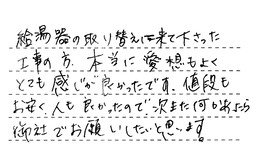 給湯器の取り替えに来て下さった
工事の方、本当に愛想もよく
とても感じが良かったです。値段も
お安く人も良かったので次また何かあったら
御社でお願いしたいと思います